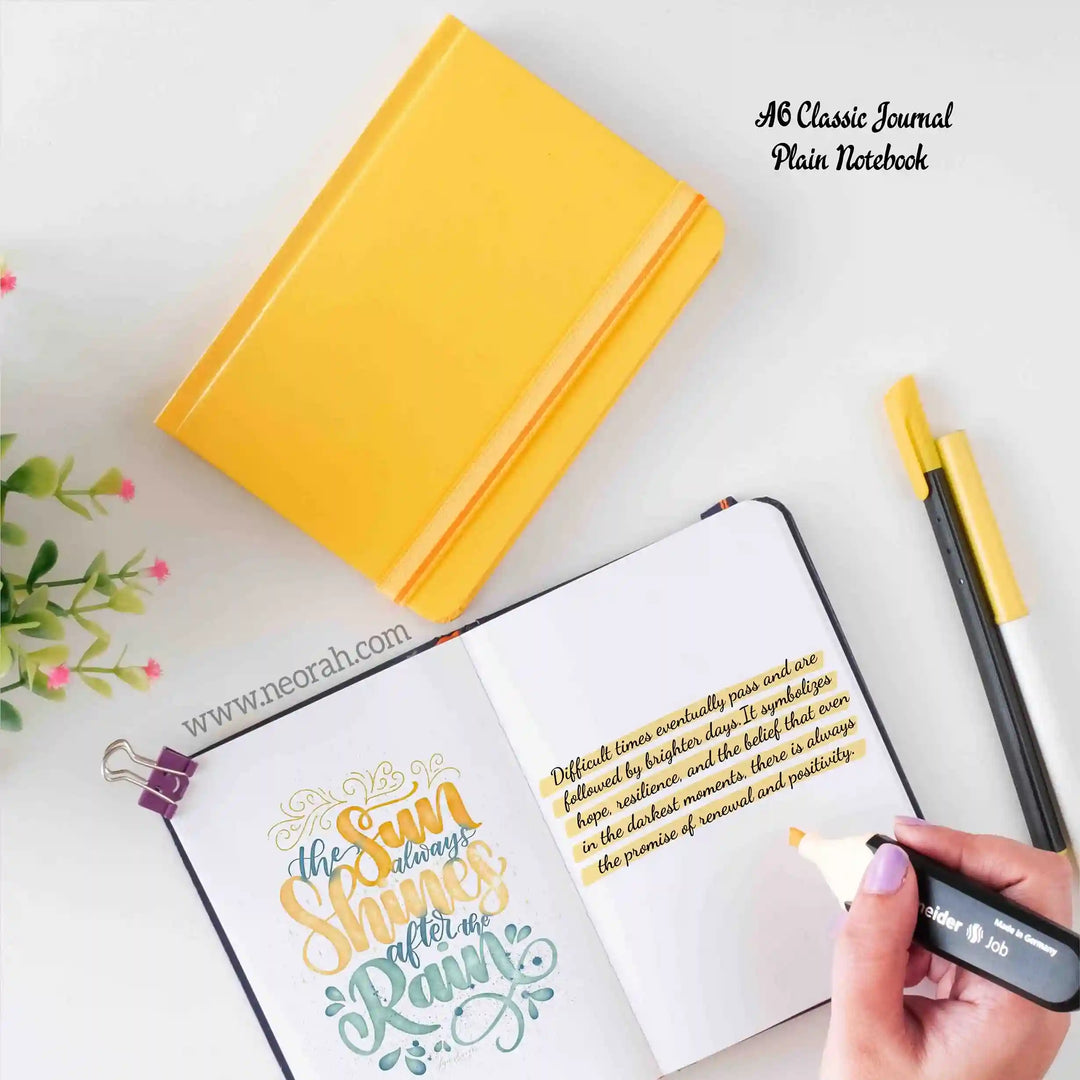 A6 Classic Journal
Plain Notebook
www.neorah.com
the Sun
always
Shines
after the
Rain
Difficult times eventually pass and are
followed by brighter days.It symbolizes
hope, resilience, and the belief that even
in the darkest moments, there is always
the promise of renewal and positivity.
neider Job
Made in Germany